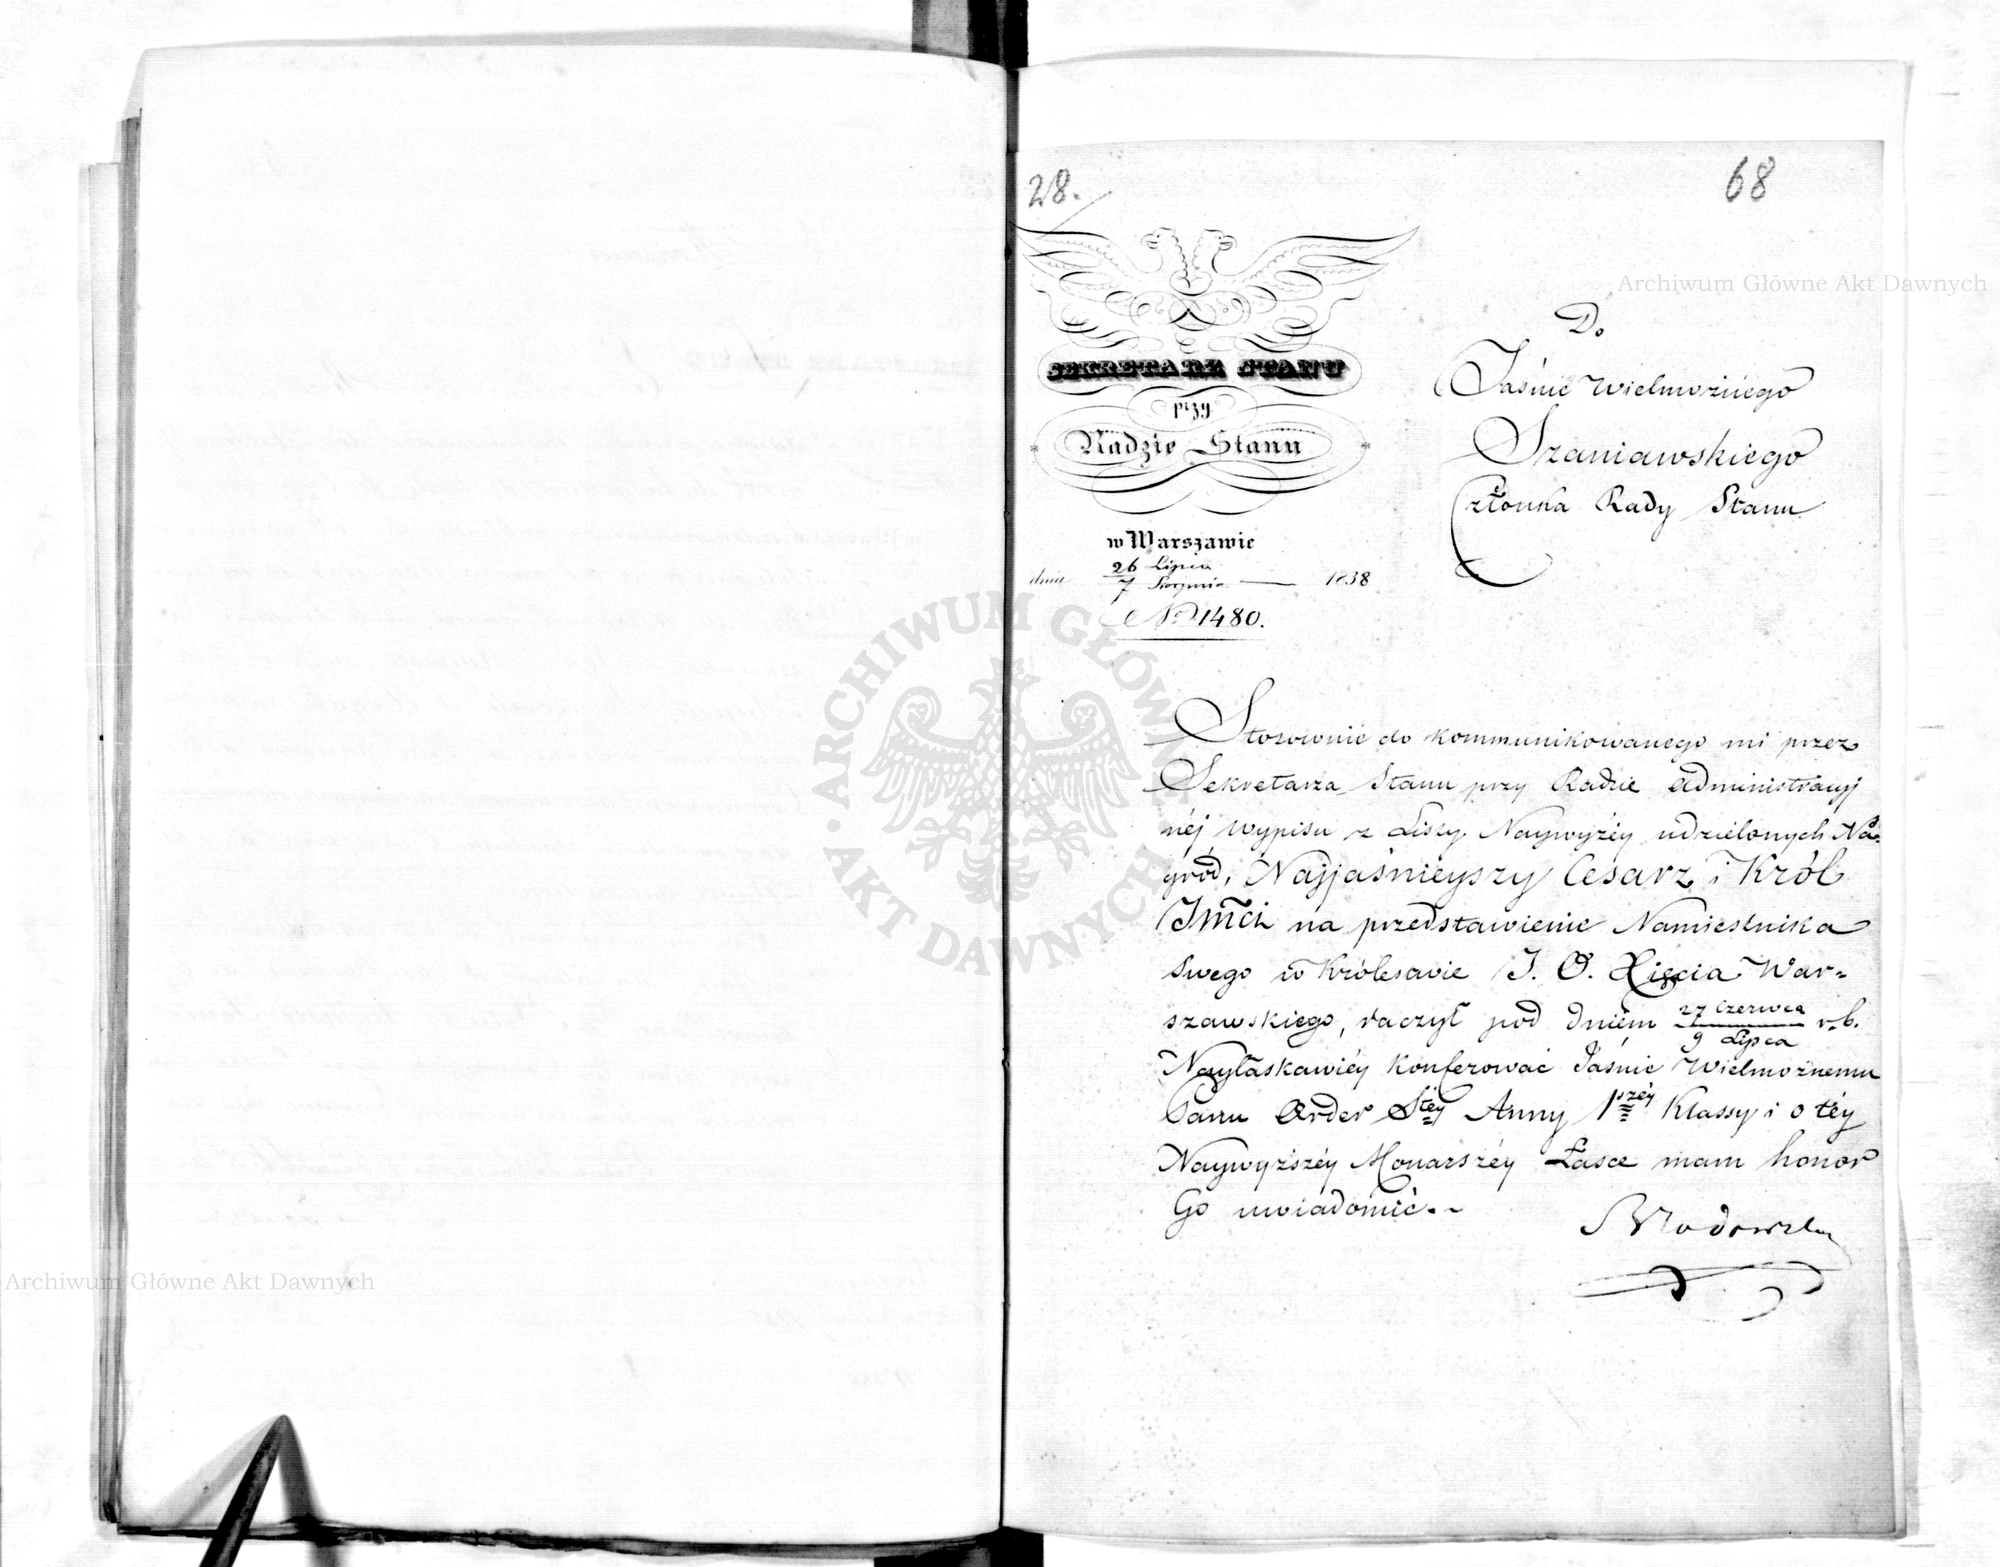 28.
68
SEKRETARZ STANU
przy
Radzie Stanu
w Warszawie
dnia 26 Lipca / 7 Sierpnia 1838
No 1480.
Do
Jaśnie Wielmożnego
Szaniawskiego
Członka Rady Stanu
Stosownie do kommunikowanego mi przez
Sekretarza Stanu przy Radzie Administracyj
néj wypisu z Listy Naywyżéy udzielonych Na-
gród, Najjaśnieyszy Cesarz i Król
Jmći na przedstawienie Namiestnika
Swego w Królestwie J. O. Xięcia War-
szawskiego, raczył pod dniem 27 Czerwca / 9 Lipca r. b.
Nayłaskawiéy konferować Jaśnie Wielmożnemu
Panu Order Stéy Anny 1széy Klassy i o téy
Naywyższéy Monarszéy Łasce mam honor
Go uwiadomić.-
Archiwum Główne Akt Dawnych
Archiwum Główne Akt Dawnych
ARCHIWUM GŁÓWNE AKT DAWNYCH